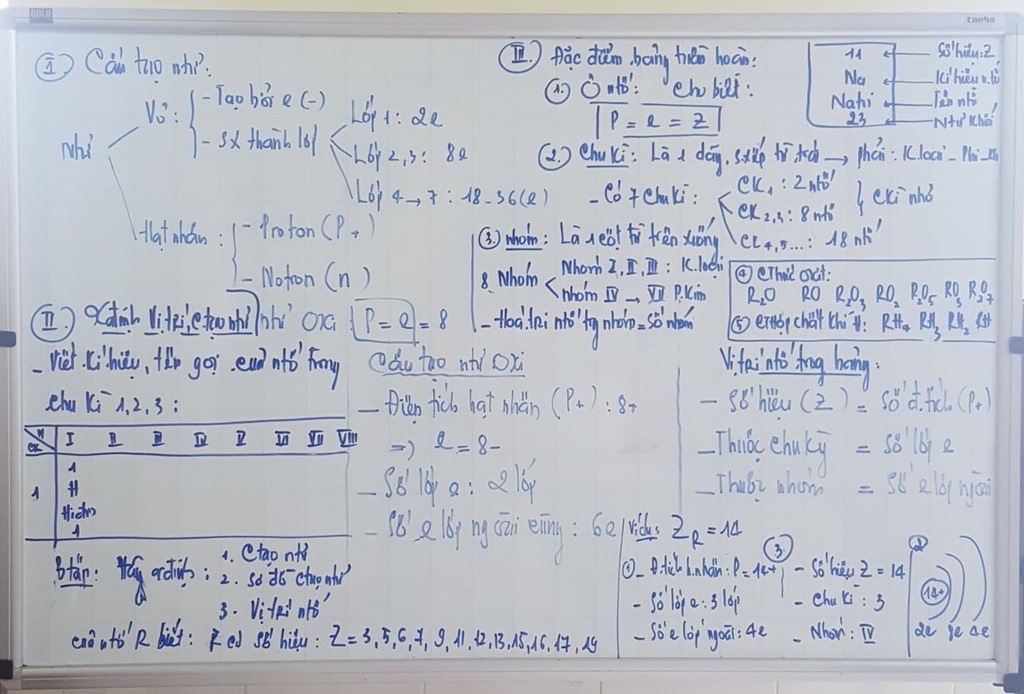 GOLD
tanho
I. Cấu tạo ntử:
Ntử
Vỏ:
- Tạo bởi e (-)
- sx thành lớp
Lớp 1: 2e
Lớp 2,3: 8e
Lớp 4 → 7: 18-36(e)
Hạt nhân:
- Proton (P+)
- Notron (n)
II. Xđịnh Vị trí, Ctạo ntử ntử oxi P = e = 8
- Viết kí hiệu, tên gọi của ntố trong
chu kì 1, 2, 3:
N
CK
I II III IV V VI VII VIII
1
1
H
Hidro
1
Btập: Hãy xđịnh:
1. Ctạo ntử
2. Sơ đồ ctạo ntử
3. Vị trí ntố
của ntố R biết: R có số hiệu: Z = 3, 5, 6, 7, 9, 11, 12, 13, 15, 16, 17, 19
Cấu tạo ntử Oxi
- Điện tích hạt nhân (P+): 8+
=> e = 8-
- Số lớp e: 2 lớp
- Số e lớp ngoài cùng: 6e
III. Đặc điểm bảng tuần hoàn:
1. Ô ntố: Cho biết:
P = e = Z
11 ← Số hiệu: Z
Na ← Kí hiệu n.tố
Natri ← Tên ntố
23 ← Ntử khối
2. Chu kì: Là 1 dãy, s.xếp từ trái → phải: K.loại - Phi -
- Có 7 chu kì:
CK1: 2 ntố
CK2,3: 8 ntố
CK4,5...: 18 ntố
CKì nhỏ
3. nhóm: Là 1 cột từ trên xuống
8 Nhóm
Nhóm I, II, III: K.loại
nhóm IV → VII P.Kim
- Hoá trị ntố tg nhóm = Số nhóm
4. CThức oxit:
R2O RO R2O3 RO2 R2O5 RO3 R2O7
5. CT Hợp chất khí H: RH4 RH3 RH2 RH
Vị trí ntố trong bảng:
- Số hiệu (Z) = Số đ.tích (P+)
- Thuộc chu kỳ = Số lớp e
- Thuộc nhóm = Số e lớp ngoài
Ví dụ: ZR = 14
1 - Đ.tích h.nhân: P = 14+
- Số lớp e: 3 lớp
- Số e lớp ngoài: 4e
3.
- Số hiệu Z = 14
- Chu kì: 3
- Nhóm: IV
2
14+
2e 8e 4e